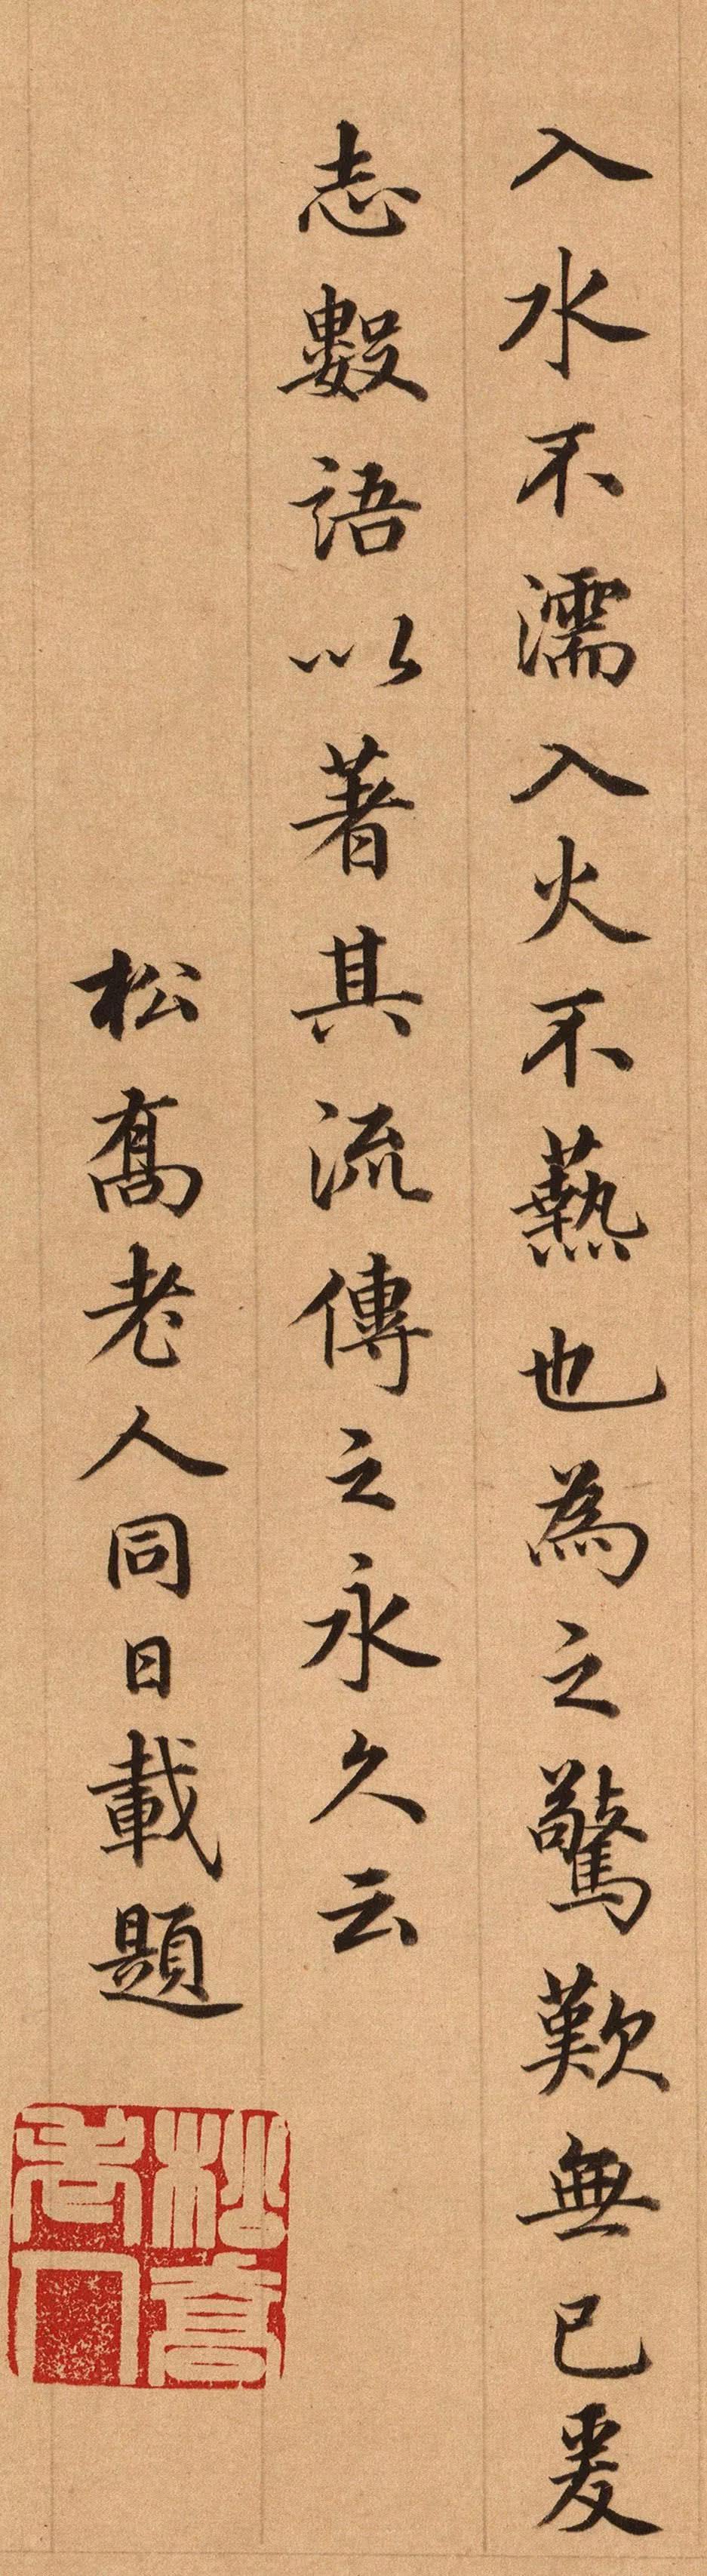 入水不濡入火不爇也為之驚歎無已爰
志數語以著其流傳之永久云
松髙老人同日載題
松髙老人